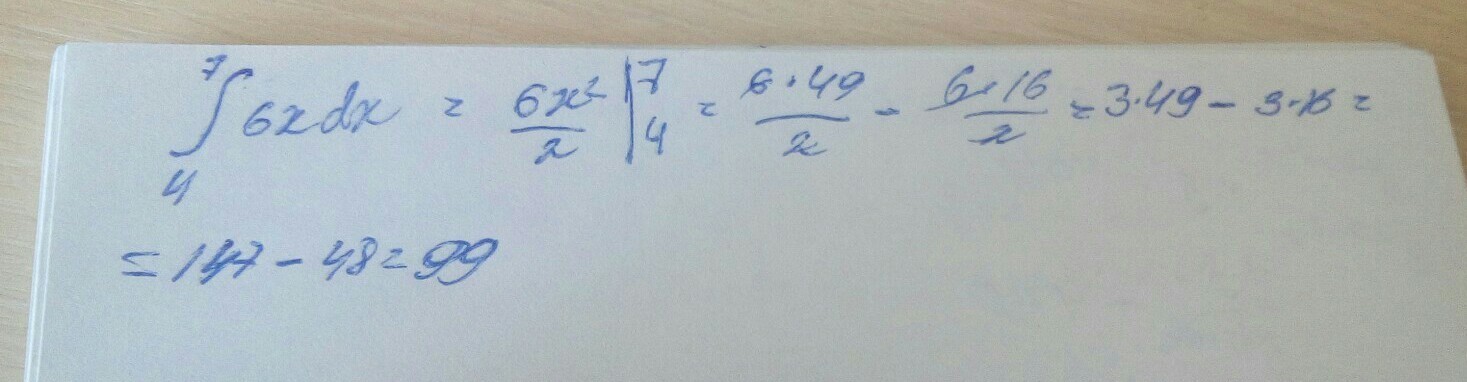 ∫₄⁷ 6x dx = 6x²/2 |₄⁷ = 6·49/2 - 6·16/2 = 3·49 - 3·16 =
= 147 - 48 = 99